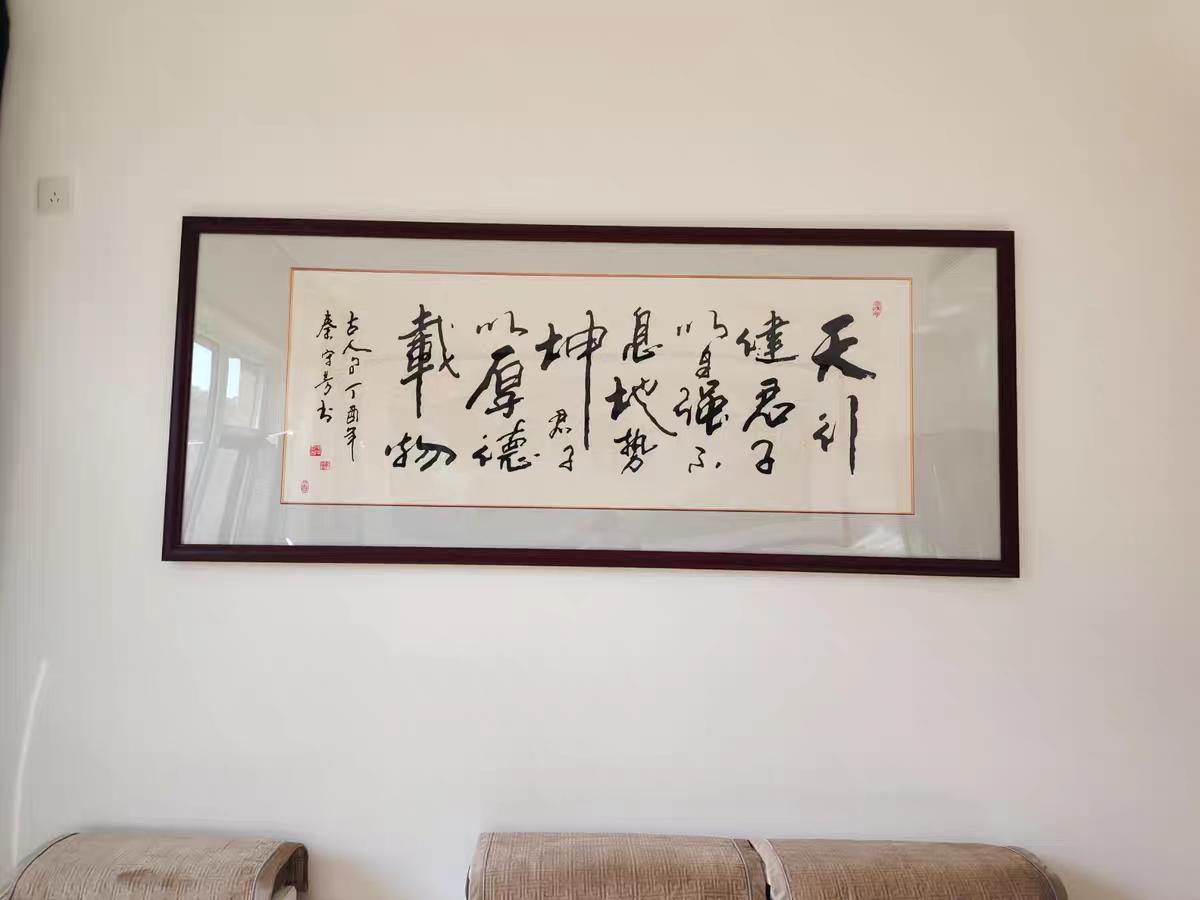 天行
健君子
以自强不
息地势
坤君子
以厚德
載物
古人句丁酉年
秦守芳书